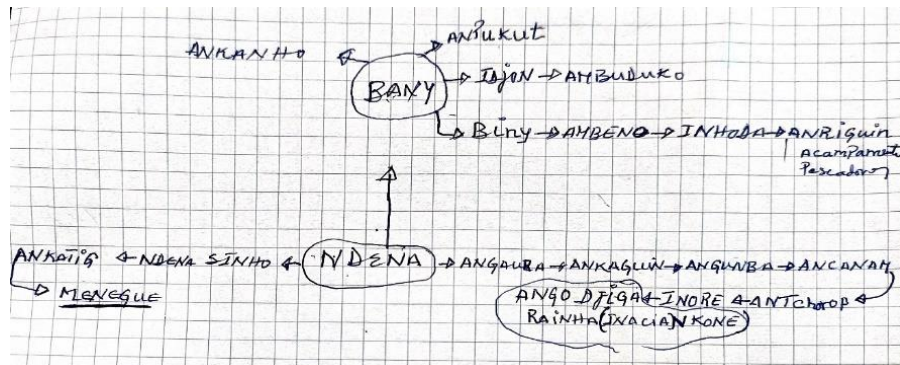 ANPUKUT
ANKANHO
BANY
IDJON → AMBUDUKO
Biny → AMBENO → INHODA → ANRIGUIN
ACAMPAMENTO
Pescadores
ANKATIG ← NDENA SINHO ← NDENA → ANGAURA → ANKAGUIN → ANGUNBA → ANCANAM
MENEGUE
ANGO DJIGA ← INORE ← ANTChorop
RAINHA (INACIA) NKONE